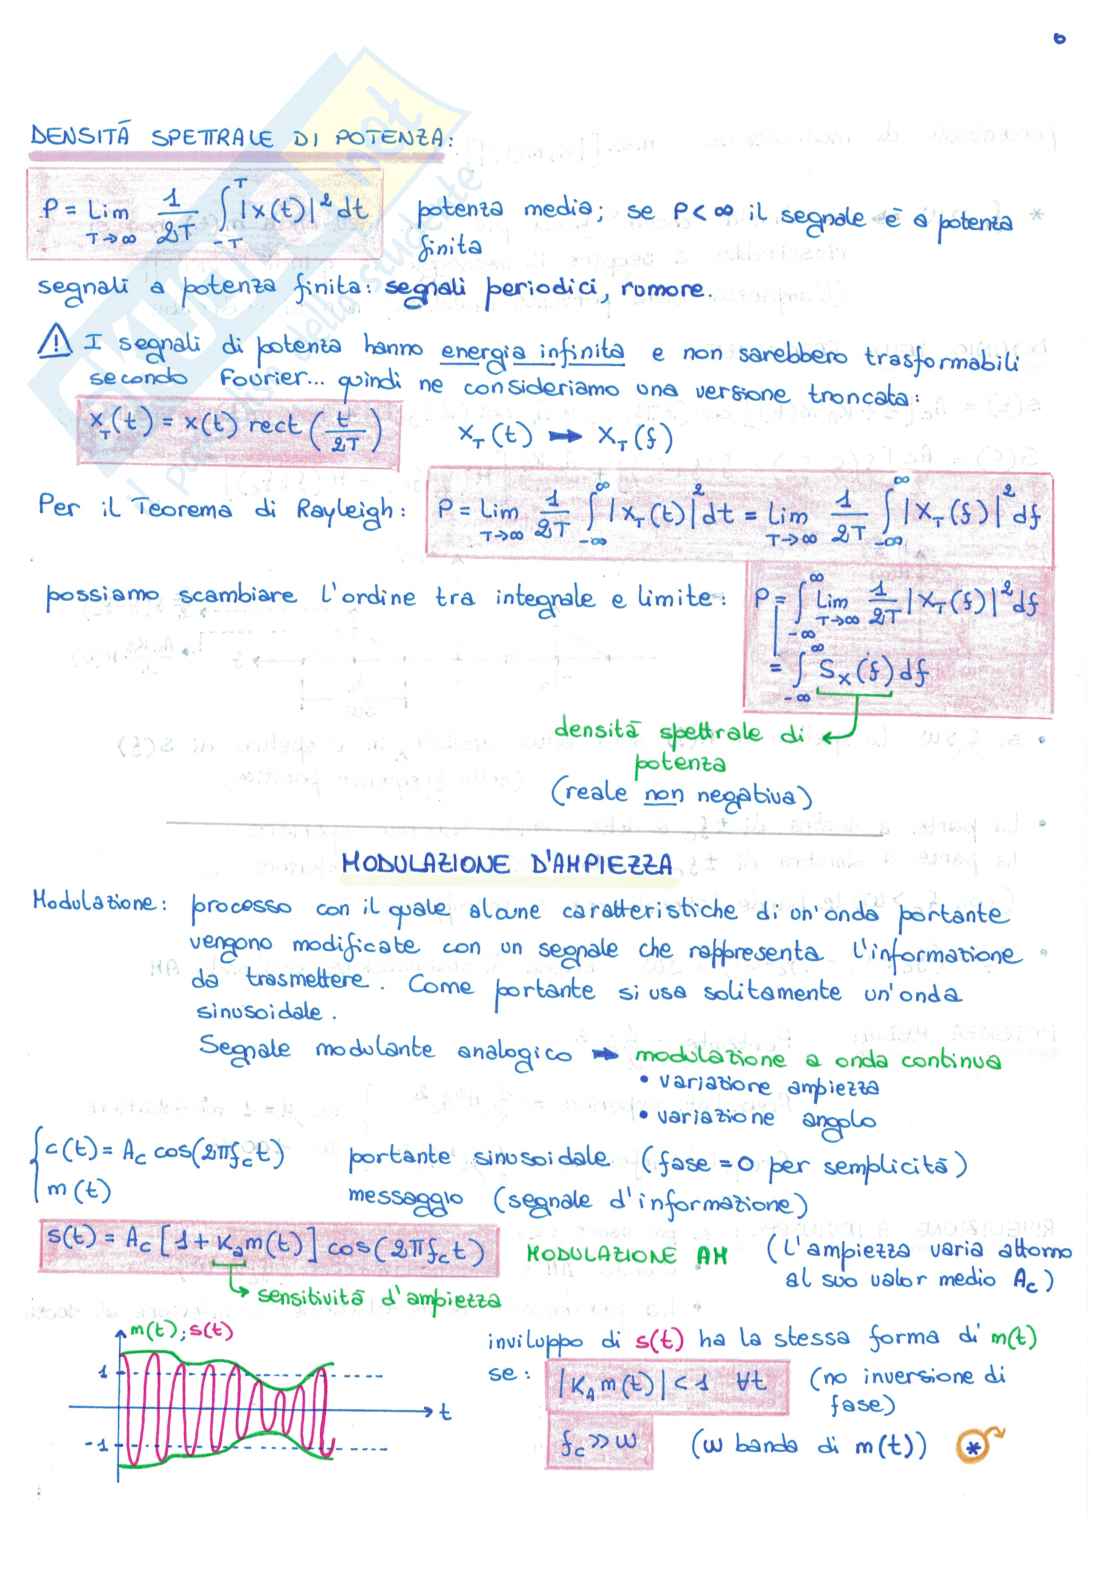 DENSITÀ SPETTRALE DI POTENZA:
P = Lim T→∞ 1/2T ∫_{-T}^{T} |x(t)|² dt potenza media; se P < ∞ il segnale è a potenza
finita
segnali a potenza finita: segnali periodici, rumore.
⚠ I segnali di potenza hanno energia infinita e non sarebbero trasformabili
secondo Fourier... quindi ne consideriamo una versione troncata:
x_T(t) = x(t) rect(t/2T) x_T(t) → X_T(f)
Per il Teorema di Rayleigh: P = Lim T→∞ 1/2T ∫_{-∞}^{∞} |x_T(t)|² dt = Lim T→∞ 1/2T ∫_{-∞}^{∞} |X_T(f)|² df
possiamo scambiare l'ordine tra integrale e limite: P = ∫_{-∞}^{∞} Lim T→∞ 1/2T |X_T(f)|² df
= ∫_{-∞}^{∞} S_X(f) df
densità spettrale di
potenza
(reale non negativa)
MODULAZIONE D'AMPIEZZA
Modulazione: processo con il quale alcune caratteristiche di un'onda portante
vengono modificate con un segnale che rappresenta l'informazione
da trasmettere. Come portante si usa solitamente un'onda
sinusoidale.
Segnale modulante analogico → modulazione a onda continua
• variazione ampiezza
• variazione angolo
c(t) = A_c cos(2πf_c t) portante sinusoidale (fase = 0 per semplicità)
m(t) messaggio (segnale d'informazione)
s(t) = A_c [1 + K_a m(t)] cos(2πf_c t) MODULAZIONE AM (L'ampiezza varia attorno
al suo valor medio A_c)
sensitività d'ampiezza
m(t); s(t)
1
-1
t
inviluppo di s(t) ha la stessa forma di m(t)
se: |K_A m(t)| < 1 ∀t (no inversione di
fase)
f_c >> w (w banda di m(t)) *